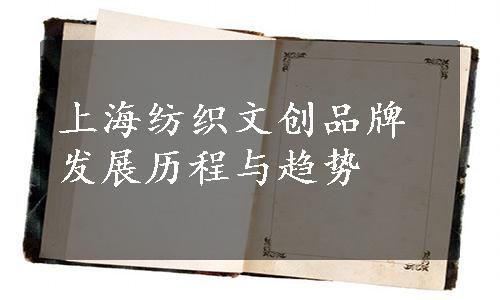 上海纺织文创品牌
发展历程与趋势